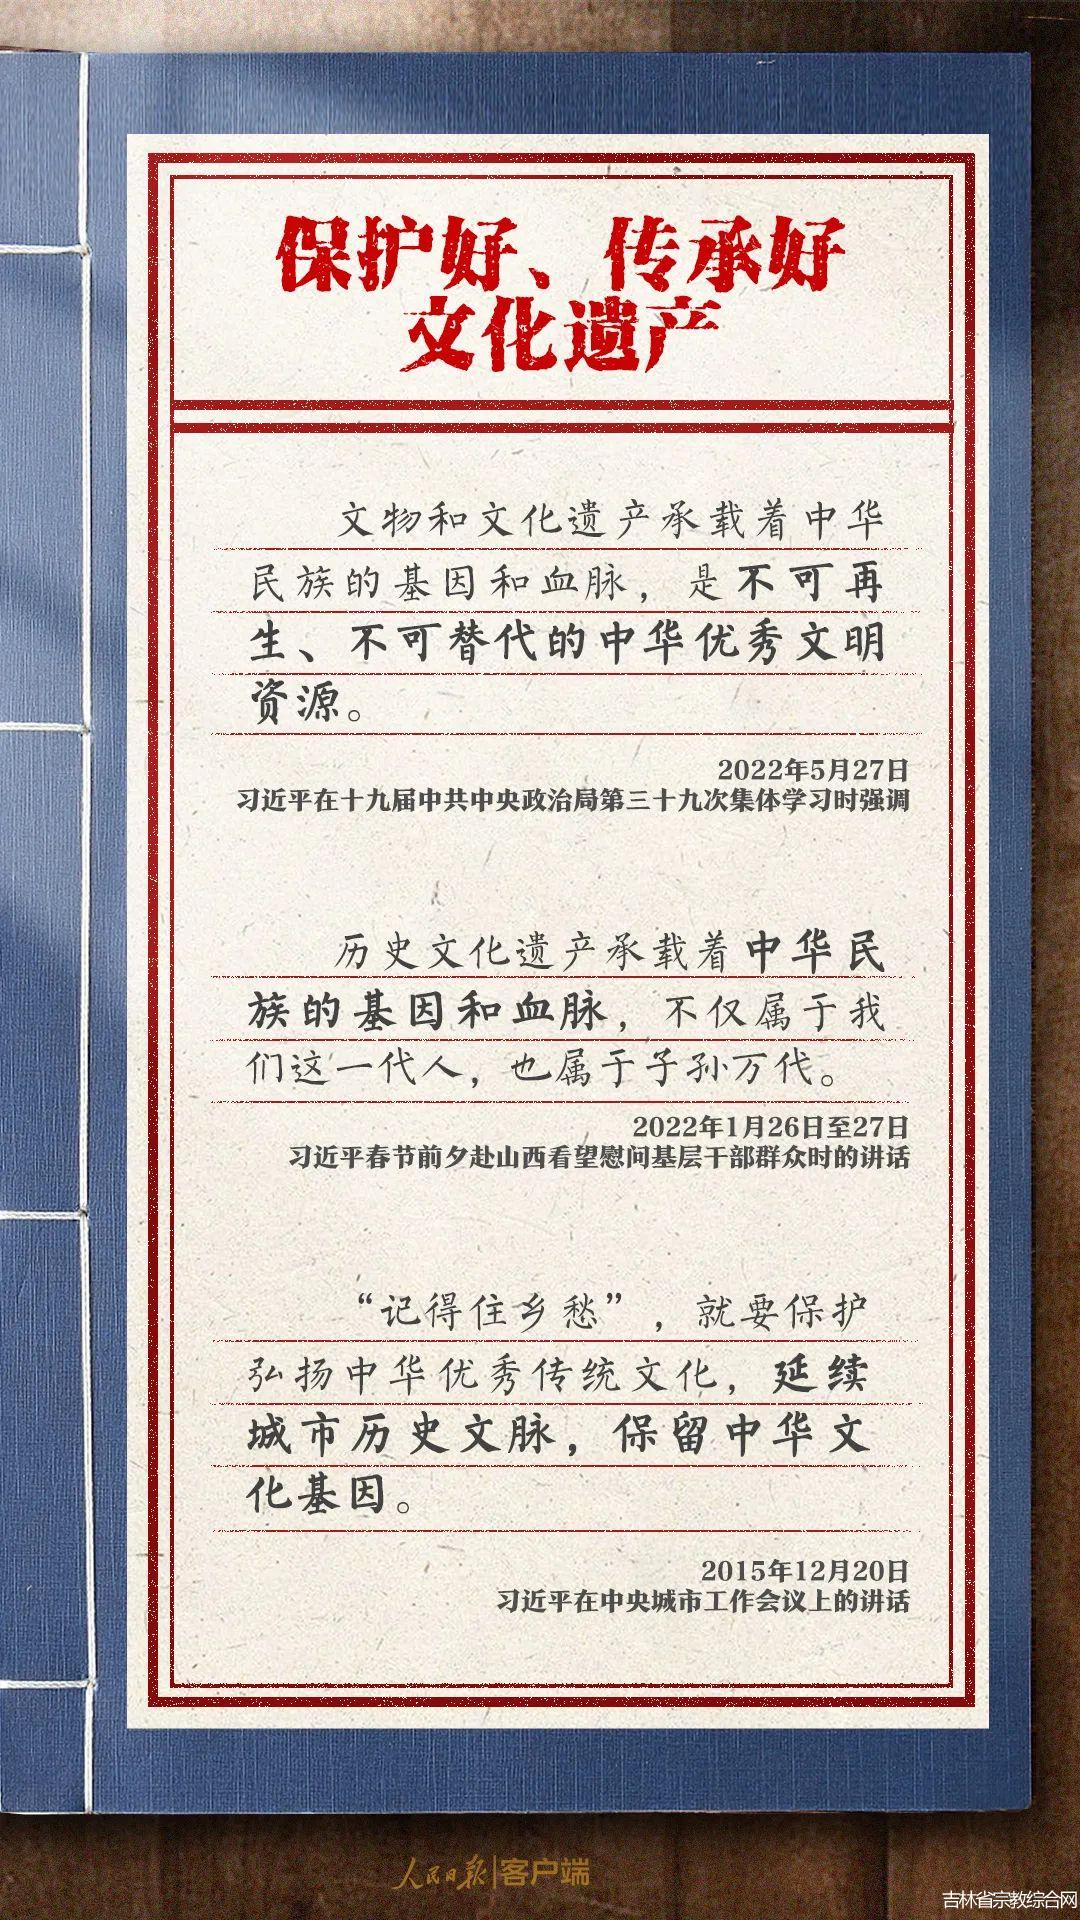 保护好、传承好
文化遗产
文物和文化遗产承载着中华
民族的基因和血脉，是不可再
生、不可替代的中华优秀文明
资源。
2022年5月27日
习近平在十九届中共中央政治局第三十九次集体学习时强调
历史文化遗产承载着中华民
族的基因和血脉，不仅属于我
们这一代人，也属于子孙万代。
2022年1月26日至27日
习近平春节前夕赴山西看望慰问基层干部群众时的讲话
“记得住乡愁”，就要保护
弘扬中华优秀传统文化，延续
城市历史文脉，保留中华文
化基因。
2015年12月20日
习近平在中央城市工作会议上的讲话
人民日报|客户端
吉林省宗教综合网